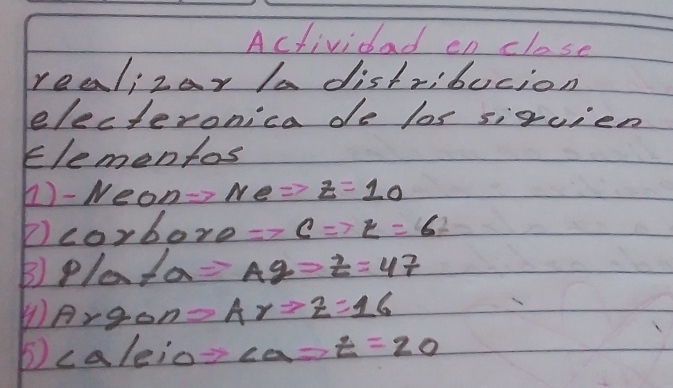 Actividad en clase
realizar la distribucion
electeronica de los siguien
Elementos
1)-Neon=>Ne=>Z=10
2)corboro=>C=>Z=6
3)Plata=>Ag=>Z=47
4)Argon=>Ar=>Z=16
5)calcio=>ca=>Z=20